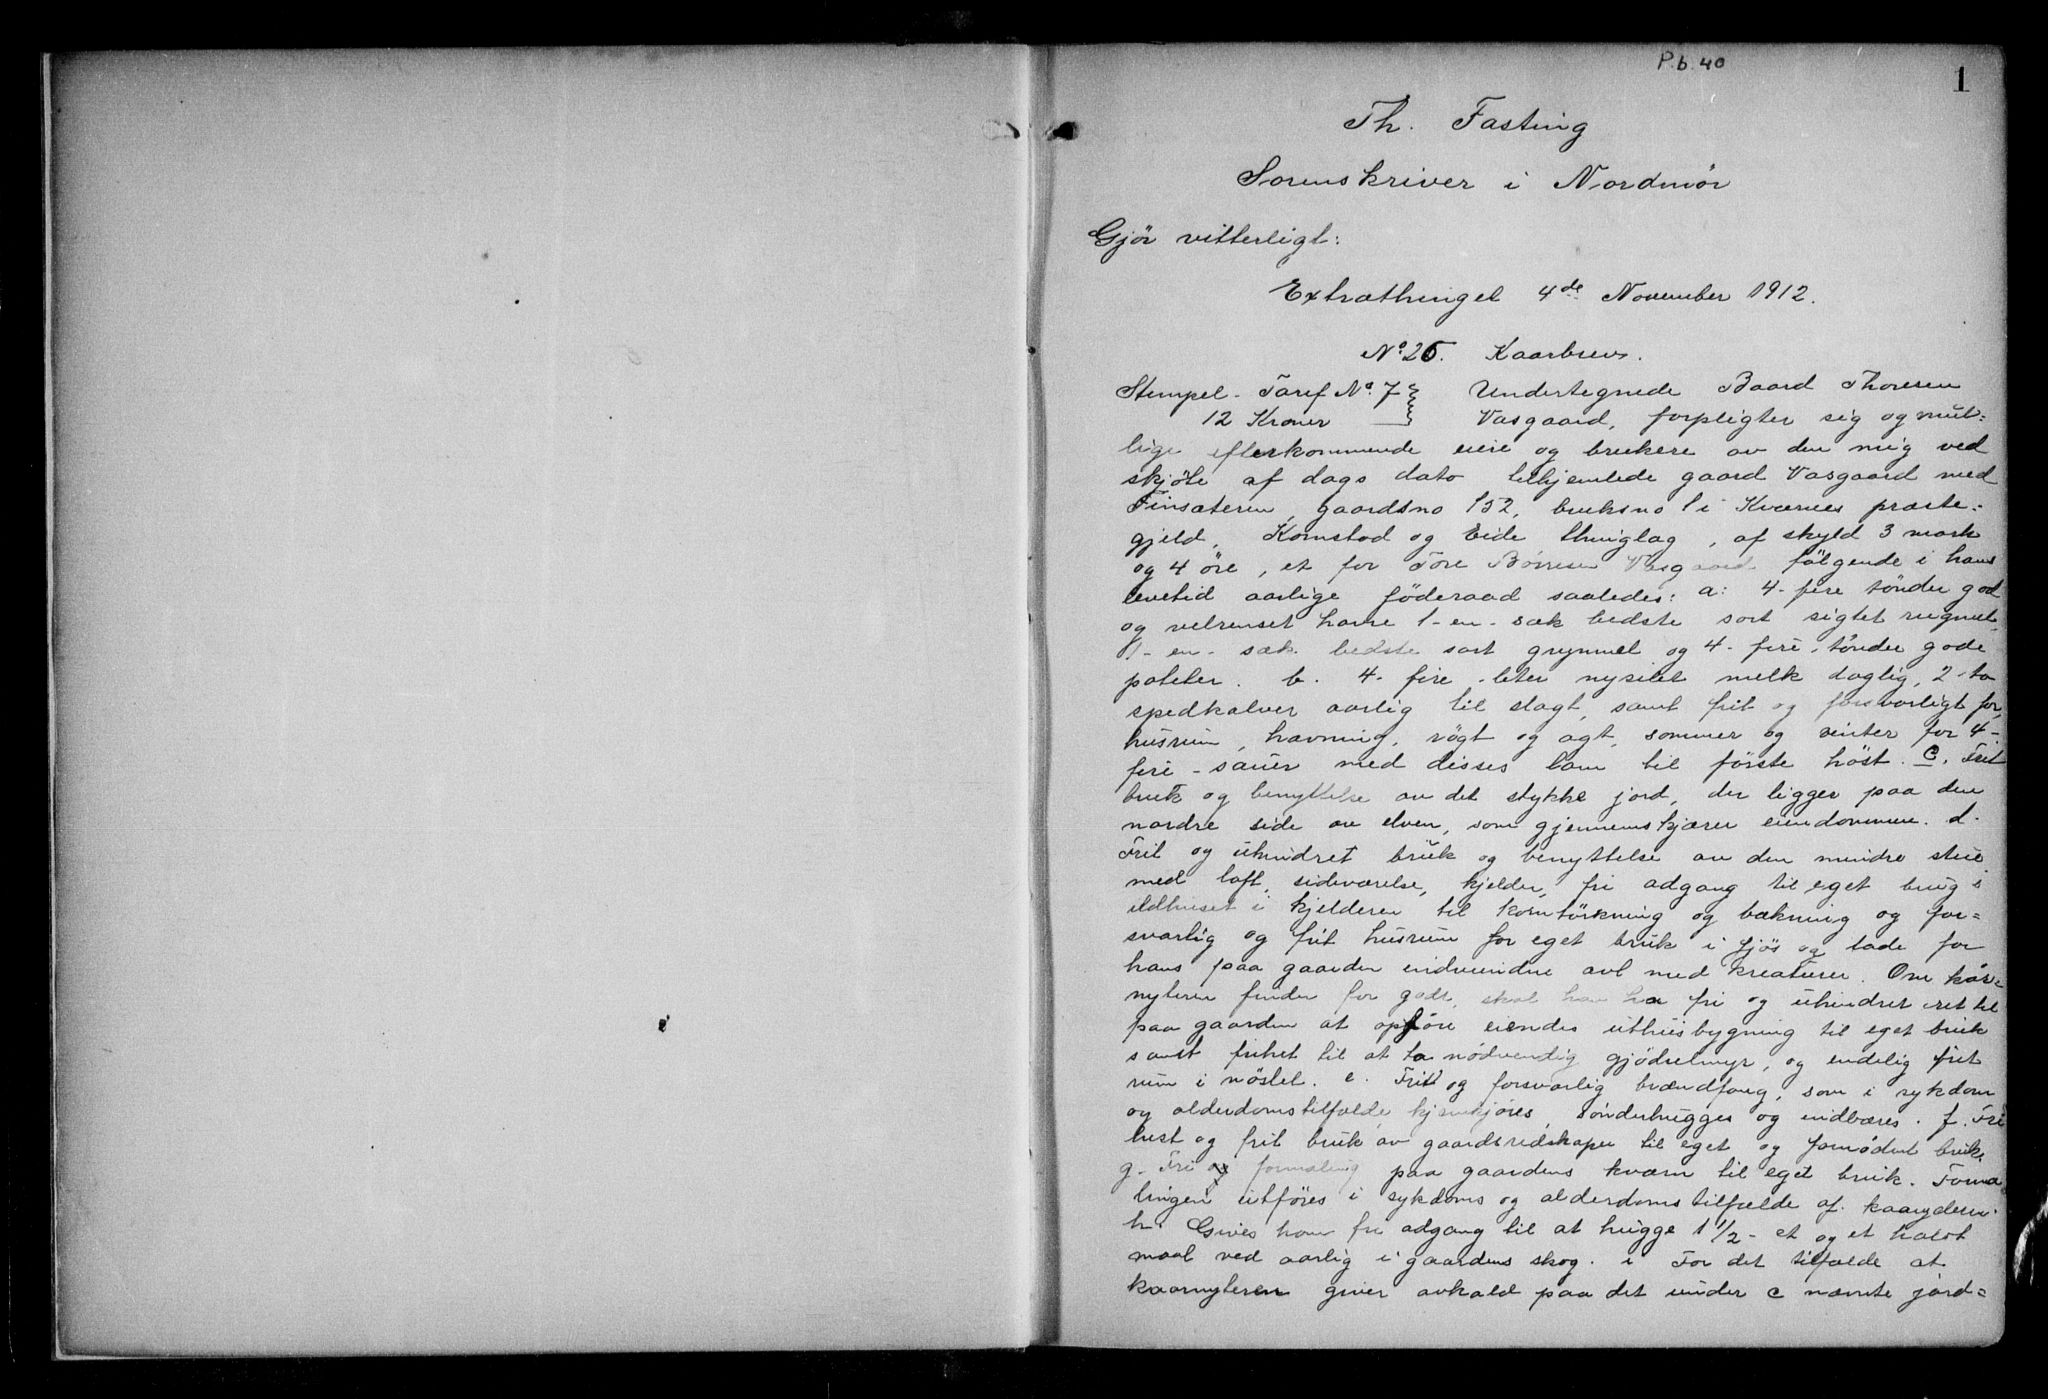 P.b. 40
1
Th. Fasting
Sorenskriver i Nordmör
Gjör vitterligt:
Extrathinget 4de November 1912.
No 26. Kaarbrev.
Stempel-Tarif No. 7 Undertegnede Baard Thoresen
12 Kroner Vasgaard, forpligter sig og mu-
lige efterkommende eiere og brukere av den mig ved
skjöte af dags dato tilhjemlede gaard Vasgaard med
Finsæteren, gaardsno 152, bruksno 1 i Kværnes præste-
gjeld, Kornstad og Eide thinglag, af skyld 3 mark
og 4 öre, et for Tore Börresen Vasgaard fölgende i hans
levetid aarlige föderaad saaledes: a: 4- fire tönder god
og velrenset havre 1-en- sæk bedste sort sigtet rugmel,
1-en- sæk bedste sort grynmel og 4- fire tönder gode
poteter. b. 4- fire liter nysilet melk daglig, 2-to
spedkalver aarlig til slagt, samt frit og forsvarligt for,
husrum, havning, rögt og agt, sommer og vinter for 4-
fire - sauer med disses lam til förste höst. C. Frit
bruk og benyttelse av det stykke jord, der ligger paa den
nordre side av elven, som gjennemskjærer eiendommen. d.
Frit og uhindret bruk og benyttelse av den mindre stue
med loft, sideværelse, kjelder, fri adgang til eget brug i
ildhuset i kjelderen til korntörkning og bakning og for-
svarlig og frit husrum for eget bruk i fjös og lade for
hans paa gaarden indvundne avl med kreaturer. Om kår-
nyteren finder for godt, skal han ha fri og uhindret ret til
paa gaarden at opföre eiendes uthusbygning til eget bruk
samt frihet til at ta nödvendig gjödselmyr, og endelig frit
rum i nöstet. e. Frit og forsvarlig brændfang, som i sykdom
og alderdomstilfælde hjemkjöres, sönderhugges og indbæres. f. Fri
hest og frit bruk av gaardsredskaper til eget og fornödent bruk.
g. Fri formaling paa gaardens kværn til eget bruk. Forma
lingen utföres i sykdoms og alderdomstilfælde af kaaryderen.
h. Gives ham fri adgang til at hugge 1 1/2 - et og et halvt
maal ved aarlig i gaardens skog. i For det tilfælde at
kaarnyteren giver avkald paa det under c nævnte jord-